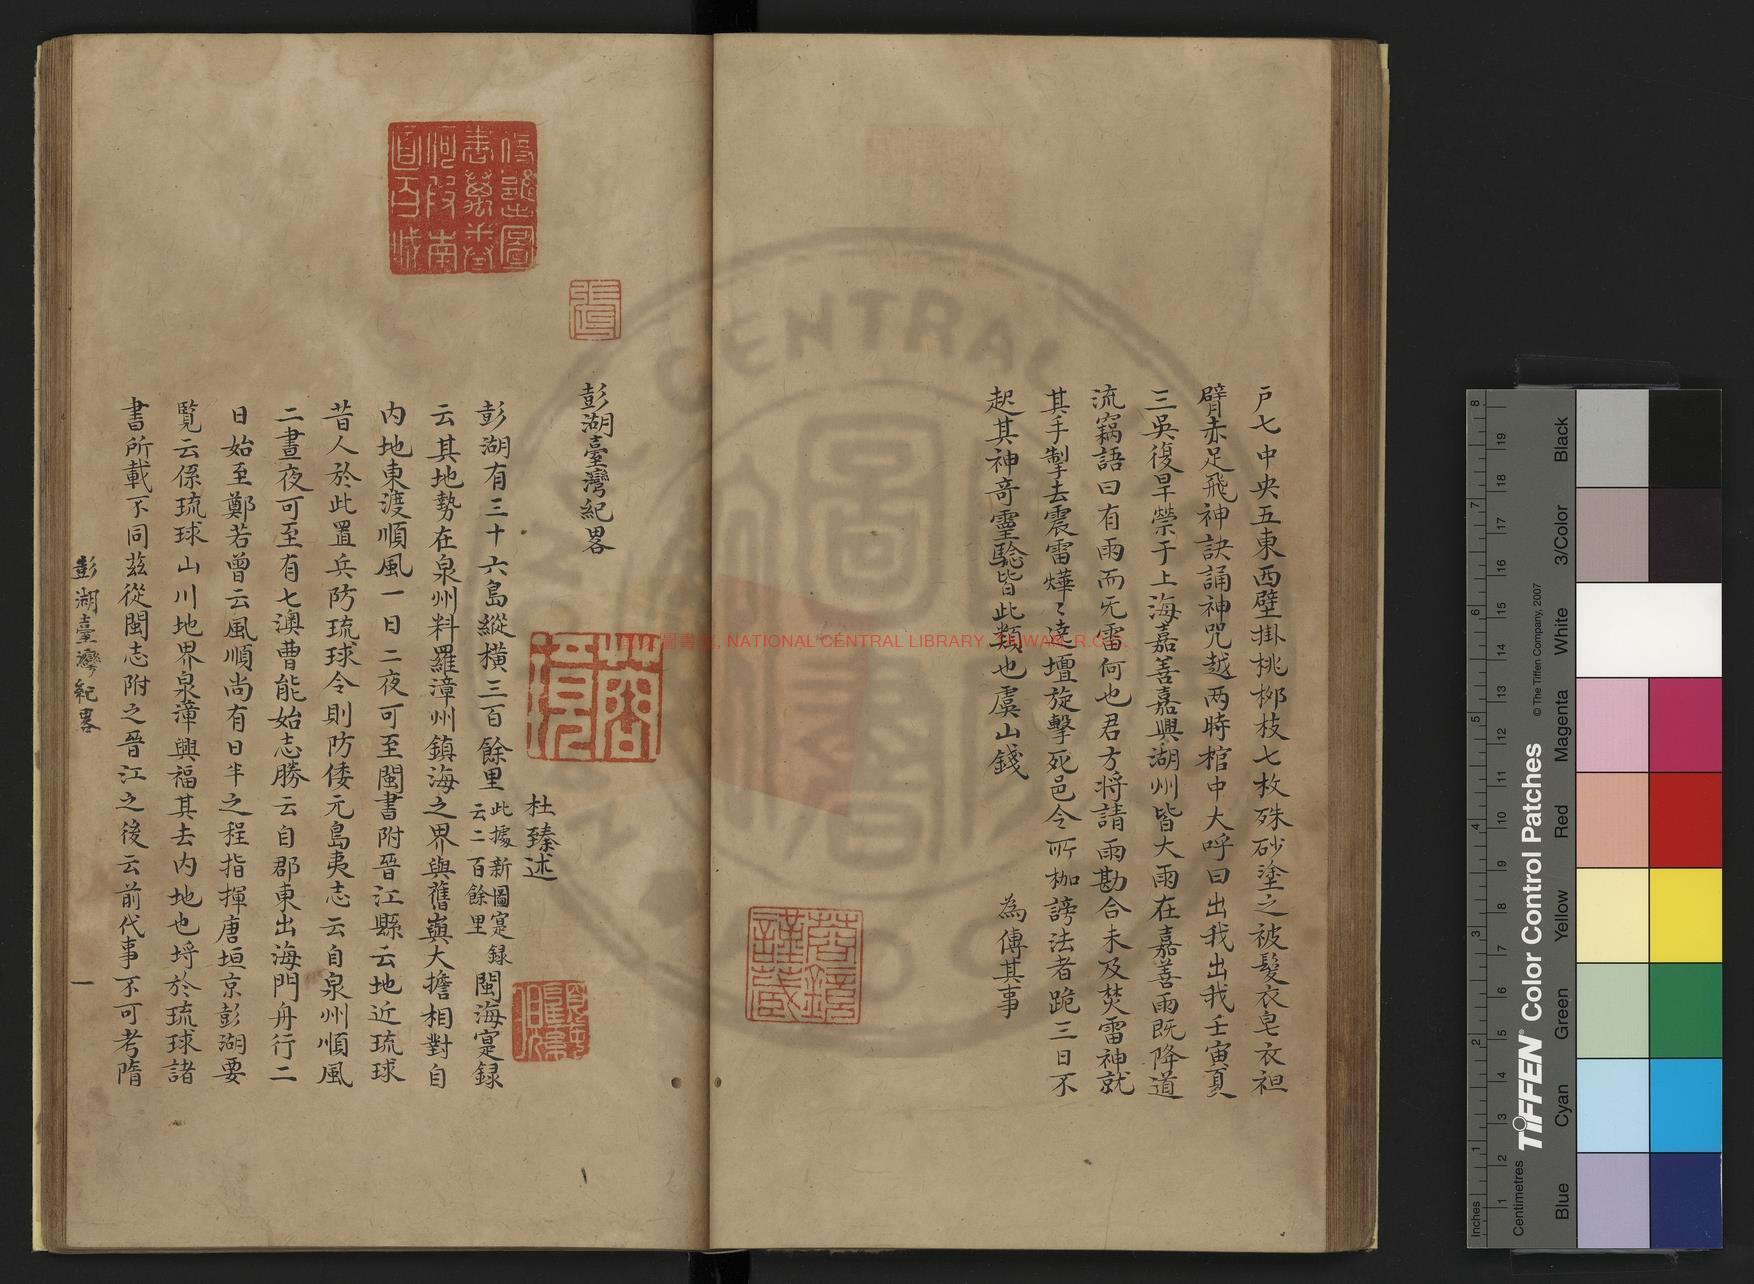 戶七中央五東西壁掛桃柳枝七枚殊砂塗之被髮衣皂衣袒
臂赤足飛神訣誦神咒越两時棺中大呼曰出我出我壬寅夏
三吳復旱禜于上海嘉善嘉興湖州皆大雨在嘉善雨既降道
流竊語曰有雨而无雷何也君方將請雨勘合未及焚雷神就
其手掣去震雷燁〻遶壇旋擊死邑令所枷謗法者跪三日不
起其神奇靈驗皆此類也虞山錢 為傳其事
彭湖臺灣紀畧
杜臻述
彭湖有三十六島縱橫三百餘里此據新圖寔録云二百餘里閩海寔録
云其地勢在泉州料羅漳州鎮海之界與舊嶼大擔相對自
内地東渡順風一日二夜可至閩書附晉江縣云地近琉球
昔人於此置兵防琉球今則防倭元島夷志云自泉州順風
二晝夜可至有七澳曹能始志勝云自郡東出海門舟行二
日始至鄭若曾云風順尚有日半之程指揮唐垣京彭湖要
覧云係琉球山川地界泉漳興福其去内地也埒於琉球諸
書所載不同茲從閩志附之晉江之後云前代事不可考隋
彭湖臺灣紀畧
一
NATIONAL CENTRAL LIBRARY, TAIWAN, R.O.C.
菩鏡
謹藏
TIFFEN® Color Control Patches
© The Tiffen Company, 2007
Inches
Centimetres
Blue
Cyan
Green
Yellow
Red
Magenta
White
3/Color
Black